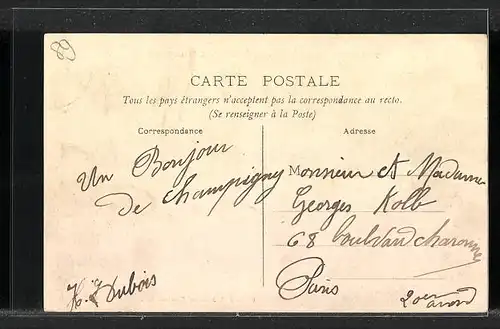 89
CARTE POSTALE
Tous les pays étrangers n'acceptent pas la correspondance au recto.
(Se renseigner à la Poste)
Correspondance
Adresse
Un Bonjour
de Champigny
H. Dubois
Monsieur et Madame
Georges Kolb
68 boulevard Charonne
Paris
20em arond